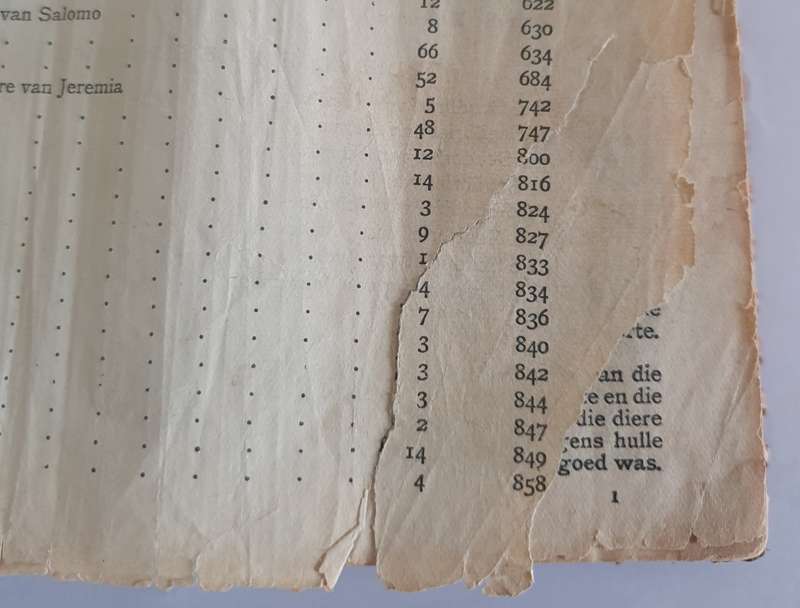 12 622
van Salomo 8 630
66 634
52 684
re van Jeremia 5 742
48 747
12 800
14 816
3 824
9 827
1 833
4 834
7 836
3 840
3 842
3 844
2 847
14 849
4 858
rte.
an die
te en die
die diere
gens hulle
goed was.
1